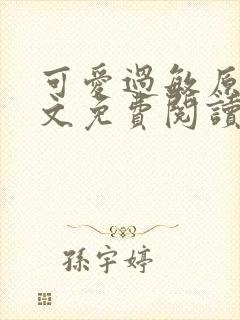 可愛過敏原
文免費閱讀
孫宇婷